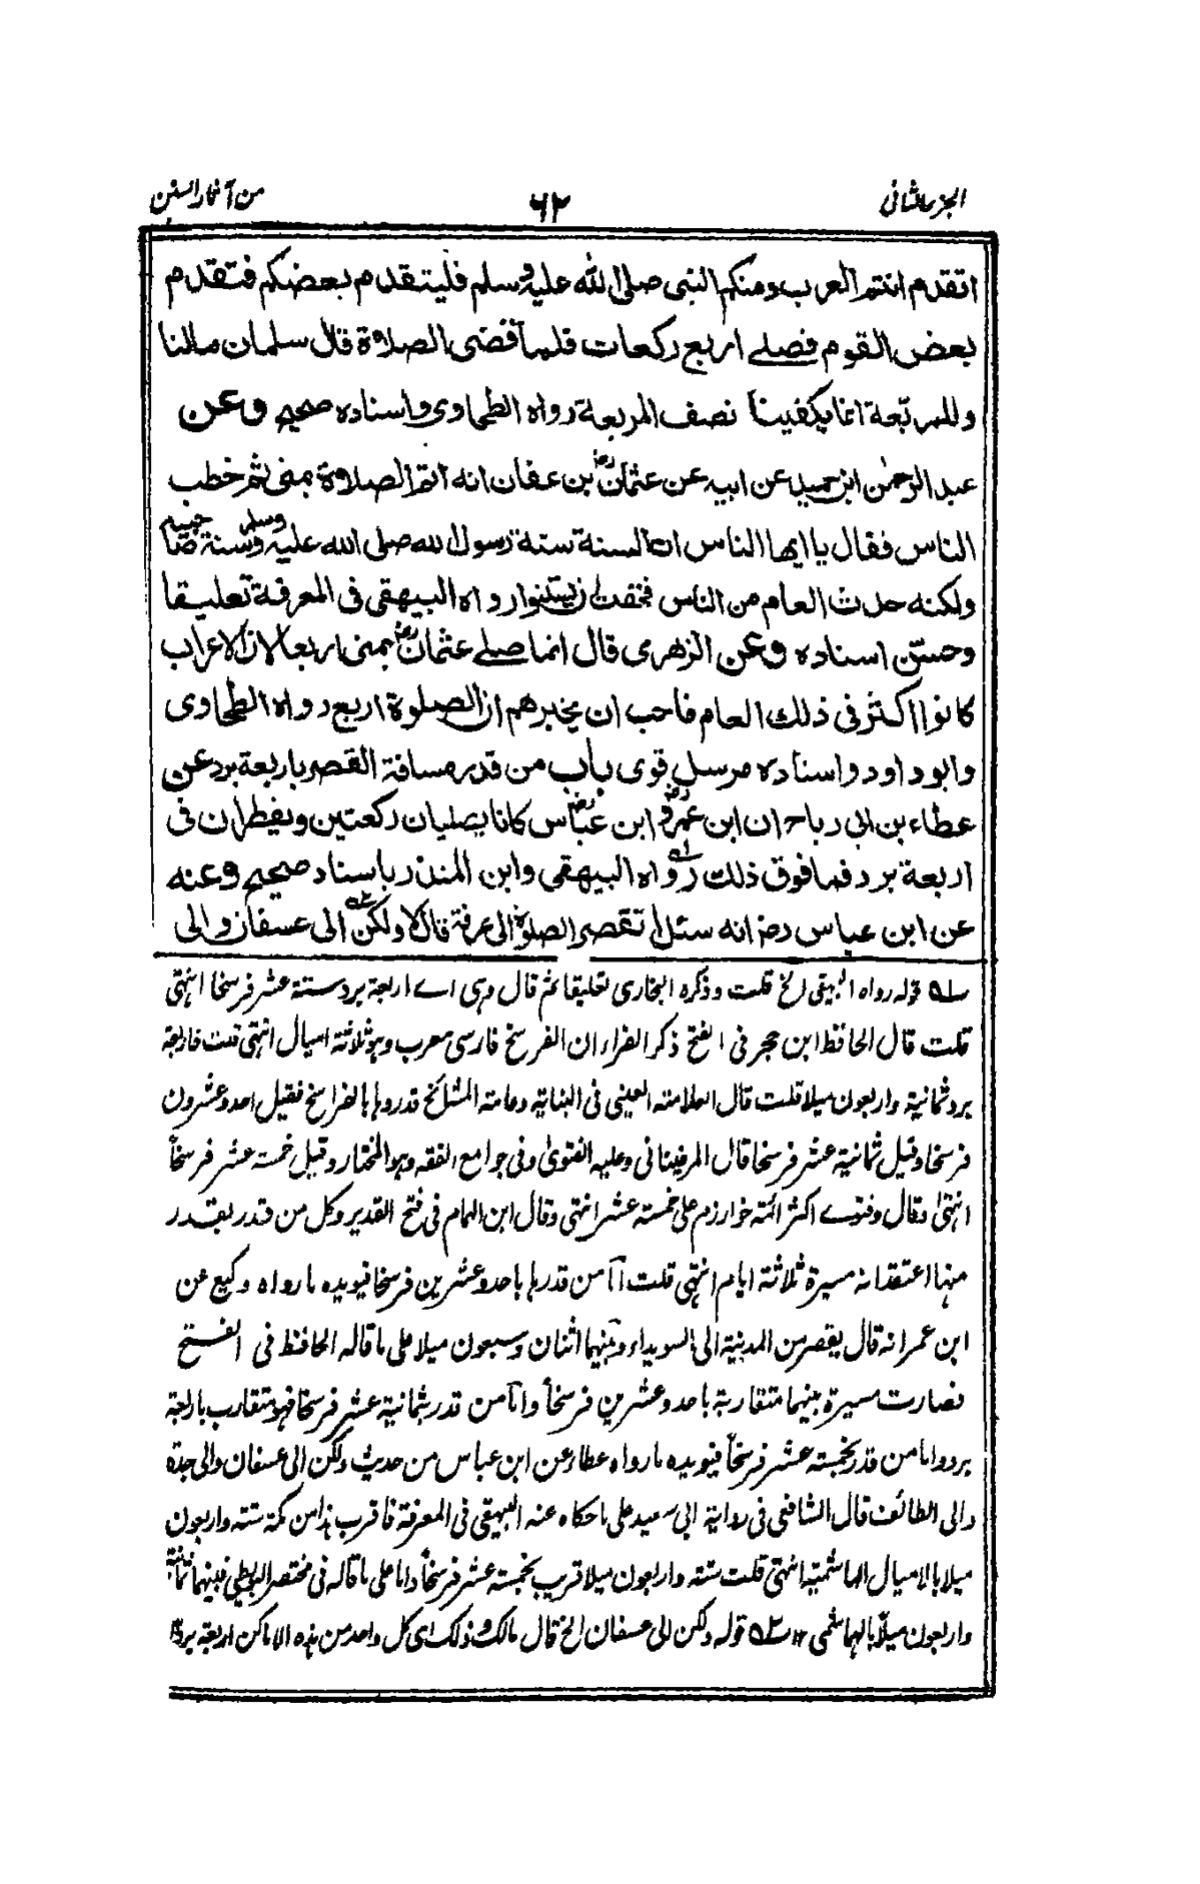 الجزء الثانی
۶۲
من آثار السنن
اتقدم انتم العرب ومنكم النبی صلی الله علیه وسلم فلیتقدم بعضكم فتقدم
بعض القوم فصلے اربع ركعات فلما قضی الصلاة قال سلمان مالنا
وللمربعة انما یكفینا نصف المربعة رواه الطحاوی واسناده صحیح وعن
عبد الرحمٰن ابن حمید عن ابیه عن عثمانؓ بن عفان انه اتم الصلاة بمنی ثم خطب
الناس فقال یا ایها الناس ان السنة سنة رسول الله صلی الله علیه وسلم وسنة صاحبیه
ولكنه حدث العام من الناس فخفت ان یستنوا رواه البیهقی فی المعرفة تعلیقا
وحسّن اسناده وعن الزهری قال انما صلے عثمانؓ بمنی اربعا لان الاعراب
كانوا اكثر فی ذلك العام فاحب ان یخبرهم ان الصلوة اربع رواه الطحاوی
وابو داود واسناده مرسل قوی باب من قدر مسافة القصر باربعة برد عن
عطاء بن ابی رباح ان ابن عمرؓ وابن عباسؓ كانا یصلیان ركعتین ویفطران فی
اربعة برد فما فوق ذلك رواه البیهقی وابن المنذر باسناد صحیح وعنه
عن ابن عباس رضؓ انه سئل أتقصر الصلوة الی عرفة قال لا ولكن الی عسفان والی
۵۱ قوله رواه البیهقی الخ قلت وذكره البخاری تعلیقا ثم قال وهی اے اربعة برد ستة عشر فرسخا انتهی
قلت قال الحافظ ابن حجر فی الفتح ذكر الفراء ان الفرسخ فارسی معرب وهو ثلاثة امیال انتهی قلت فاربعة
برد ثمانیة واربعون میلا قلت قال العلامة العینی فی البنایة وعامة المشائخ قدروها بالفراسخ فقیل احد وعشرون
فرسخا وقیل ثمانیة عشر فرسخا قال المرغینانی وعلیه الفتویٰ وفی جوامع الفقه وهو المختار وقیل خمسة عشر فرسخاً
انتهیٰ وقال وفتوے اكثر ائمة خوارزم علی خمسة عشر انتهی وقال ابن الهمام فی فتح القدیر وكل من قدر بقدر
منها اعتقد انه مسیرة ثلاثة ایام انتهی قلت اما من قدرها باحد وعشرین فرسخا فیویده ما رواه وكیع عن
ابن عمر انه قال یقصر من المدینة الی السویداء وبینهما اثنان وسبعون میلا علی ما قاله الحافظ فی الفتح
فصارت مسیرة بینهما متقاربة باحد وعشرین فرسخاً واما من قدر بثمانیة عشر فرسخا فهو متقارب باربعة
برد واما من قدر بخمسة عشر فرسخاً فیویده ما رواه عطاء عن ابن عباس من حدیث ولكن الی عسفان والی جدة
والی الطائف قال الشافعی فی روایة ابی سعید علی ما حكاه عنه البیهقی فی المعرفة فاقرب هذا من مكة ستة واربعون
میلا بالامیال الهاشمیة انتهی قلت ستة واربعون میلا قریب بخمسة عشر فرسخاً واما علی ما قاله فی مختصر البویطی فبینهما ثمانیة
واربعون میلاً بالهاشمی ۱۲ ۵۲ قوله ولكن الی عسفان الخ قال مالك وذلك ای كل واحد من هذه الاماكن اربعة برد